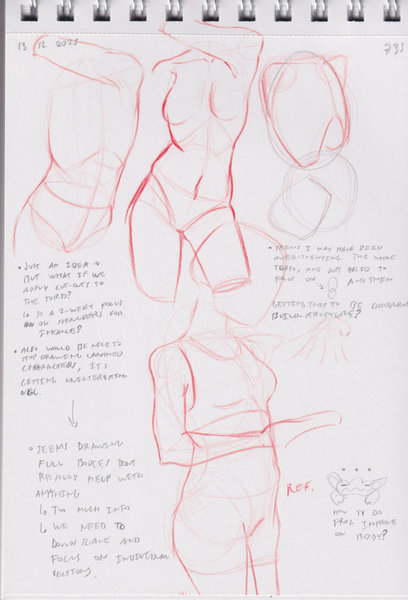 13 12 2025
735
• JUST AN IDEA →
BUT WHAT IF WE
APPLY CUT-OUTS TO
THE TORSO?
↳ SO A 2-WEEK FOCUS
ON SHOULDERS FOR
INSTANCE?
• ALSO WOULD BE NICE TO
STOP DRAWING UNNAMED
CHARACTERS, IT'S
GETTING UNINTERESTING
NGL.
• SEEMS DRAWING
FULL BODIES DONT
REALLY HELP WITH
ANYTHING
↳ TOO MUCH INFO
↳ WE NEED TO
DOWNSCALE AND
FOCUS ON INDIVIDUAL
SECTIONS.
• SEEMS I MAY HAVE BEEN
OVER-THINKING THE WHOLE
TORSO, AND JUST NEED TO
FOCUS ON AND THEN
GETTING THIS TO BE
REF.
...
HOW TO DO
IMPROVE
ON BODY?